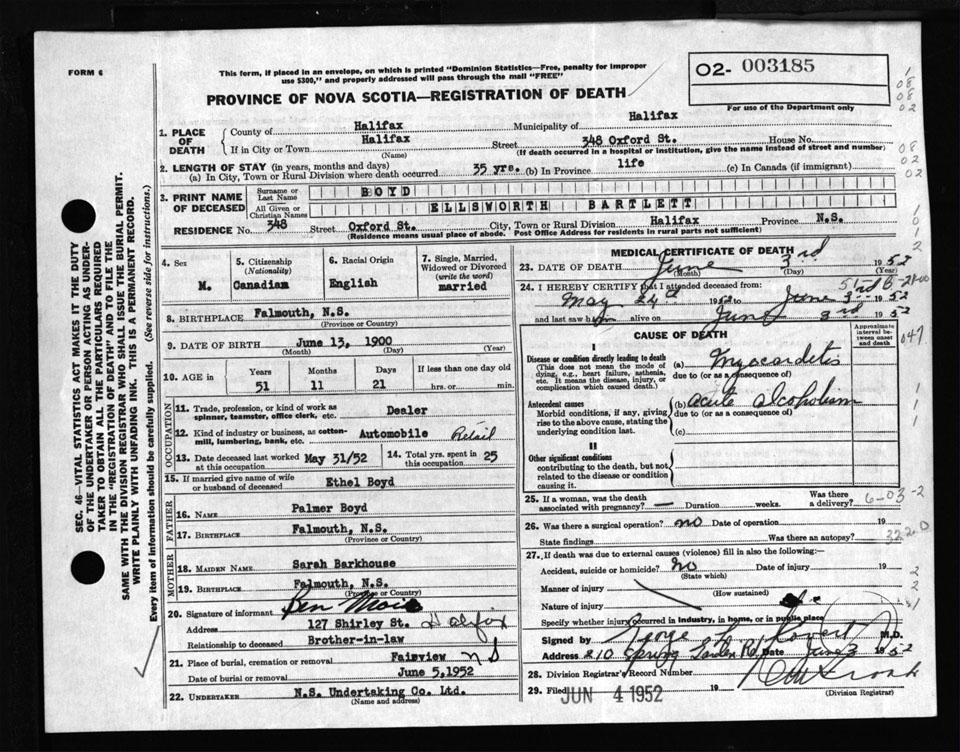 FORM 6
This form, if placed in an envelope, on which is printed "Dominion Statistics—Free, penalty for improper
use $300," and properly addressed will pass through the mail "FREE"
02- 003185
For use of the Department only
PROVINCE OF NOVA SCOTIA—REGISTRATION OF DEATH
SEC. 46—VITAL STATISTICS ACT MAKES IT THE DUTY
OF THE UNDERTAKER OR PERSON ACTING AS UNDER-
TAKER TO OBTAIN ALL THE PARTICULARS REQUIRED
IN THE "REGISTRATION OF DEATH" AND TO FILE THE
SAME WITH THE DIVISION REGISTRAR WHO SHALL ISSUE THE BURIAL PERMIT.
WRITE PLAINLY WITH UNFADING INK. THIS IS A PERMANENT RECORD.
Every item of information should be carefully supplied. (See reverse side for instructions.)
1. PLACE OF DEATH
County of Halifax Municipality of Halifax
If in City or Town Halifax Street 348 Oxford St. House No.
(Name) (If death occurred in a hospital or institution, give the name instead of street and number)
2. LENGTH OF STAY (in years, months and days)
(a) In City, Town or Rural Division where death occurred 35 yrs. (b) In Province life (c) In Canada (if immigrant)
3. PRINT NAME OF DECEASED
Surname or Last Name BOYD
All Given or Christian Names ELLSWORTH BARTLETT
RESIDENCE No. 348 Street Oxford St. City, Town or Rural Division Halifax Province N.S.
(Residence means usual place of abode. Post Office Address for residents in rural parts not sufficient)
4. Sex M.
5. Citizenship (Nationality) Canadian
6. Racial Origin English
7. Single, Married, Widowed or Divorced (write the word) married
8. BIRTHPLACE Falmouth, N.S.
(Province or Country)
9. DATE OF BIRTH June 13, 1900
(Month) (Day) (Year)
10. AGE IN Years Months Days If less than one day old
51 11 21 hrs. or min.
OCCUPATION
11. Trade, profession, or kind of work as spinner, teamster, office clerk, etc. Dealer
12. Kind of industry or business, as cotton-mill, lumbering, bank, etc. Automobile Retail
13. Date deceased last worked at this occupation May 31/52
14. Total yrs. spent in this occupation 25
15. If married give name of wife or husband of deceased Ethel Boyd
FATHER
16. NAME Palmer Boyd
17. BIRTHPLACE Falmouth, N.S.
(Province or Country)
MOTHER
18. MAIDEN NAME Sarah Barkhouse
19. BIRTHPLACE Falmouth, N.S.
(Province or Country)
20. Signature of informant Ben
Address 127 Shirley St. Halifax
Relationship to deceased Brother-in-law
21. Place of burial, cremation or removal Fairview N S
Date of burial or removal June 5,1952
22. UNDERTAKER N.S. Undertaking Co. Ltd.
(Name and address)
MEDICAL CERTIFICATE OF DEATH
23. DATE OF DEATH June 3rd 1952
(Month) (Day) (Year)
24. I HEREBY CERTIFY that I attended deceased from:
May 24th 1952 to June 3rd 1952
and last saw him alive on June 3rd 1952
CAUSE OF DEATH
Approximate interval between onset and death
I
Disease or condition directly leading to death
(This does not mean the mode of dying, e.g., heart failure, asthenia, etc. It means the disease, injury, or complication which caused death.)
(a) Myocarditis
due to (or as a consequence of)
Antecedent causes
Morbid conditions, if any, giving rise to the above cause, stating the underlying condition last.
(b) acute alcoholism
due to (or as a consequence of)
(c)
II
Other significant conditions
contributing to the death, but not related to the disease or condition causing it.
25. If a woman, was the death associated with pregnancy? — Duration weeks. Was there a delivery?
26. Was there a surgical operation? no Date of operation 19
State findings Was there an autopsy?
27. If death was due to external causes (violence) fill in also the following:—
Accident, suicide or homicide? no Date of injury 19
(State which)
Manner of injury
(How sustained)
Nature of injury
Specify whether injury occurred in industry, in home, or in public place
Signed by M.D.
Address 210 Spring Garden Rd Date June 3 1952
28. Division Registrar's Record Number
29. Filed JUN 4 1952 19
(Division Registrar)